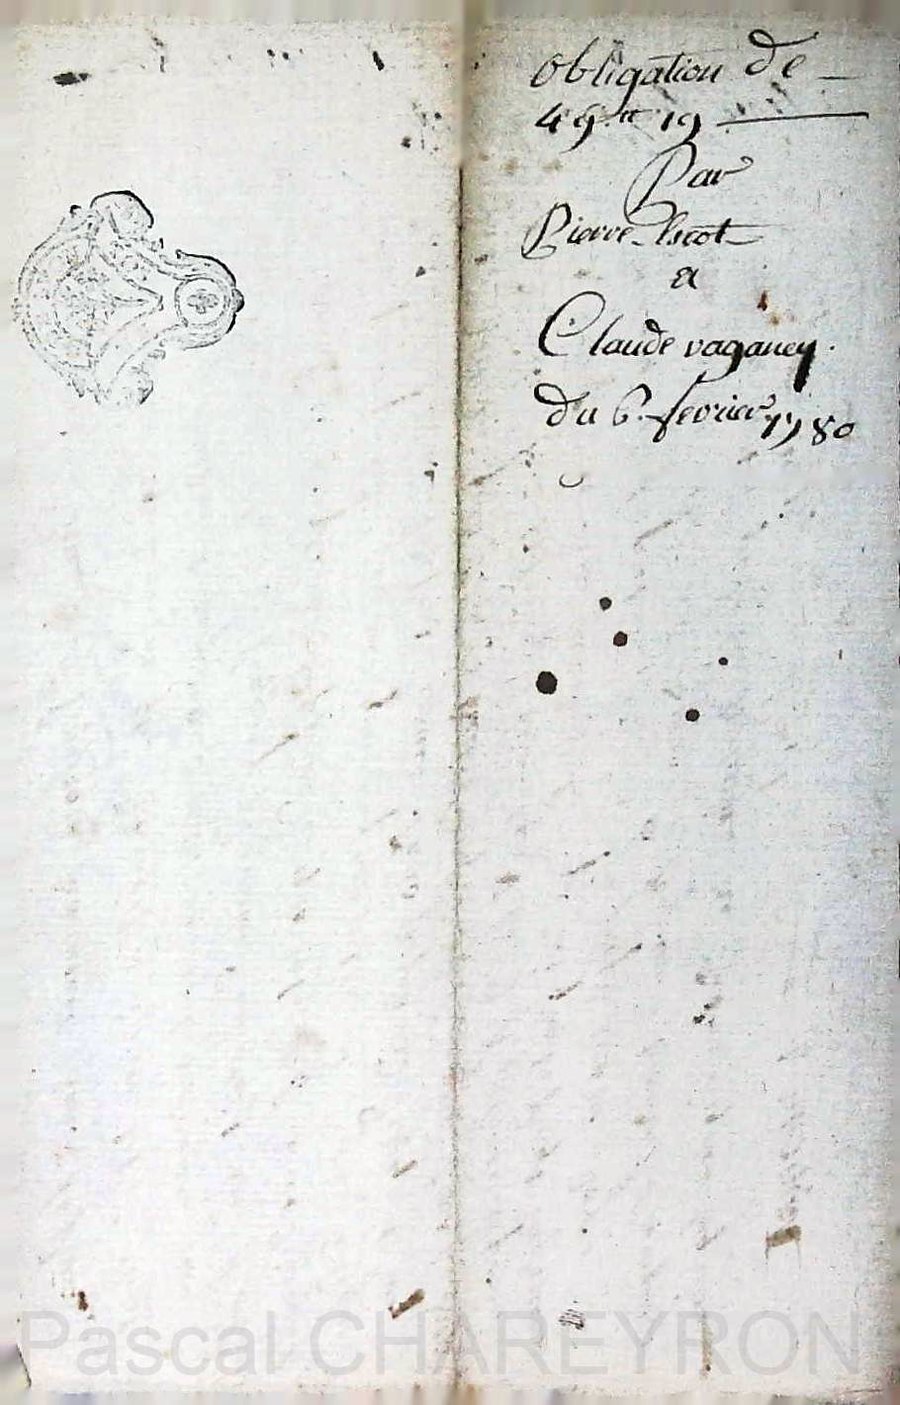 obligation de
49ᵗᵗ 19
Par
Pierre Escot
a
Claude vaganey.
du 6. fevrier 1780
Pascal CHAREYRON